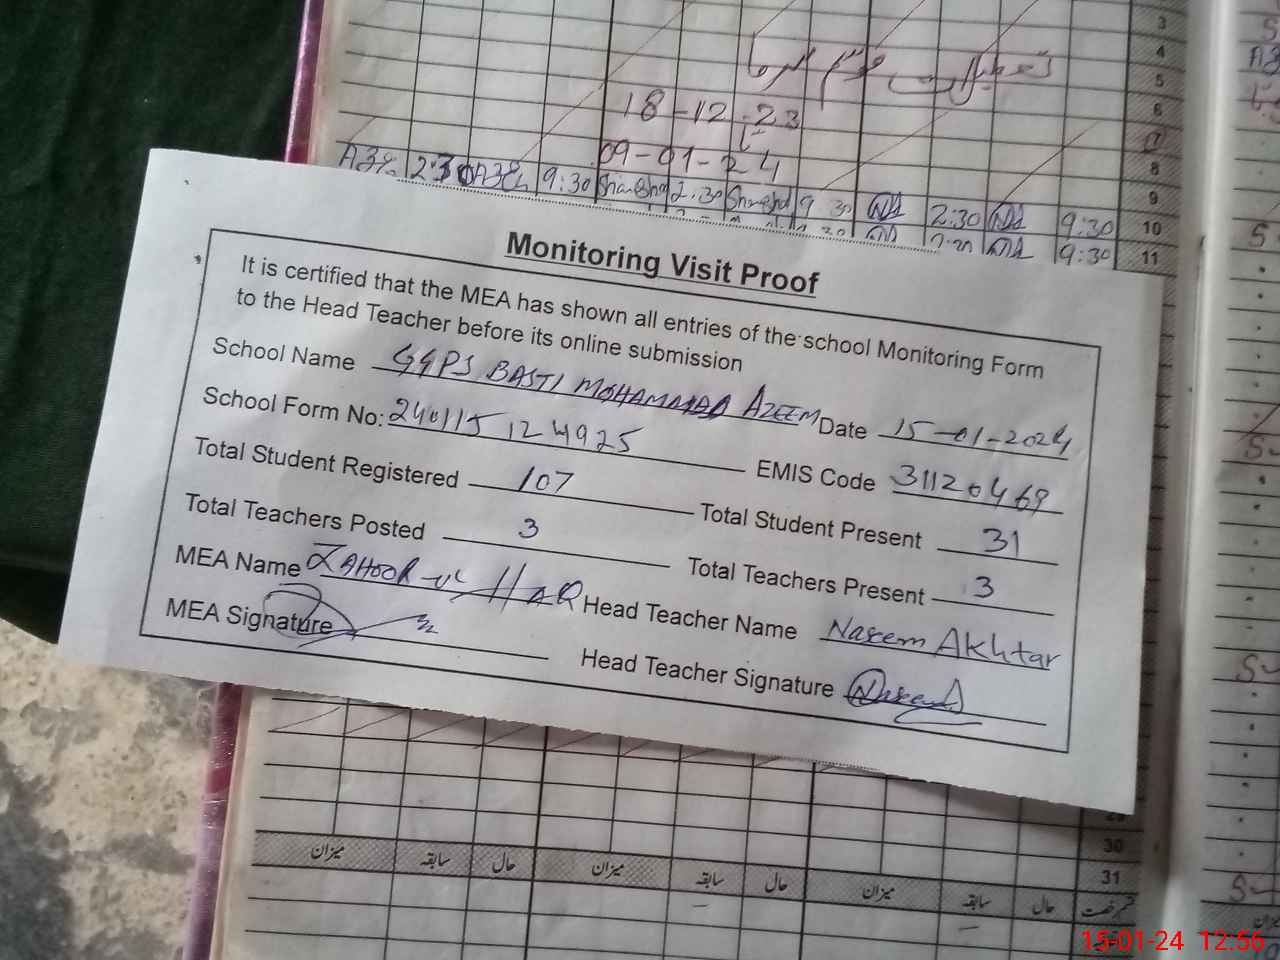 3
4
5
تعطیلات موسم سرما
6
18-12-23
7
تا
8
09-01-24
9
2:30 9:30 Shamshad 2:30 Shamshad 9:30 2:30 9:30
10
9:30
11
Monitoring Visit Proof
It is certified that the MEA has shown all entries of the school Monitoring Form
to the Head Teacher before its online submission
School Name GGPS BASTI MOHAMMAD AZEEM Date 15-01-2024
School Form No: 240115124925 EMIS Code 31120469
Total Student Registered 107 Total Student Present 31
Total Teachers Posted 3 Total Teachers Present 3
MEA Name ZAHOOR-ul-HAQ Head Teacher Name Naseem Akhtar
MEA Signature Head Teacher Signature Naseem
29
30
31
میزان سابقہ حال میزان سابقہ حال میزان سابقہ حال قسم رخصت
15-01-24 12:56